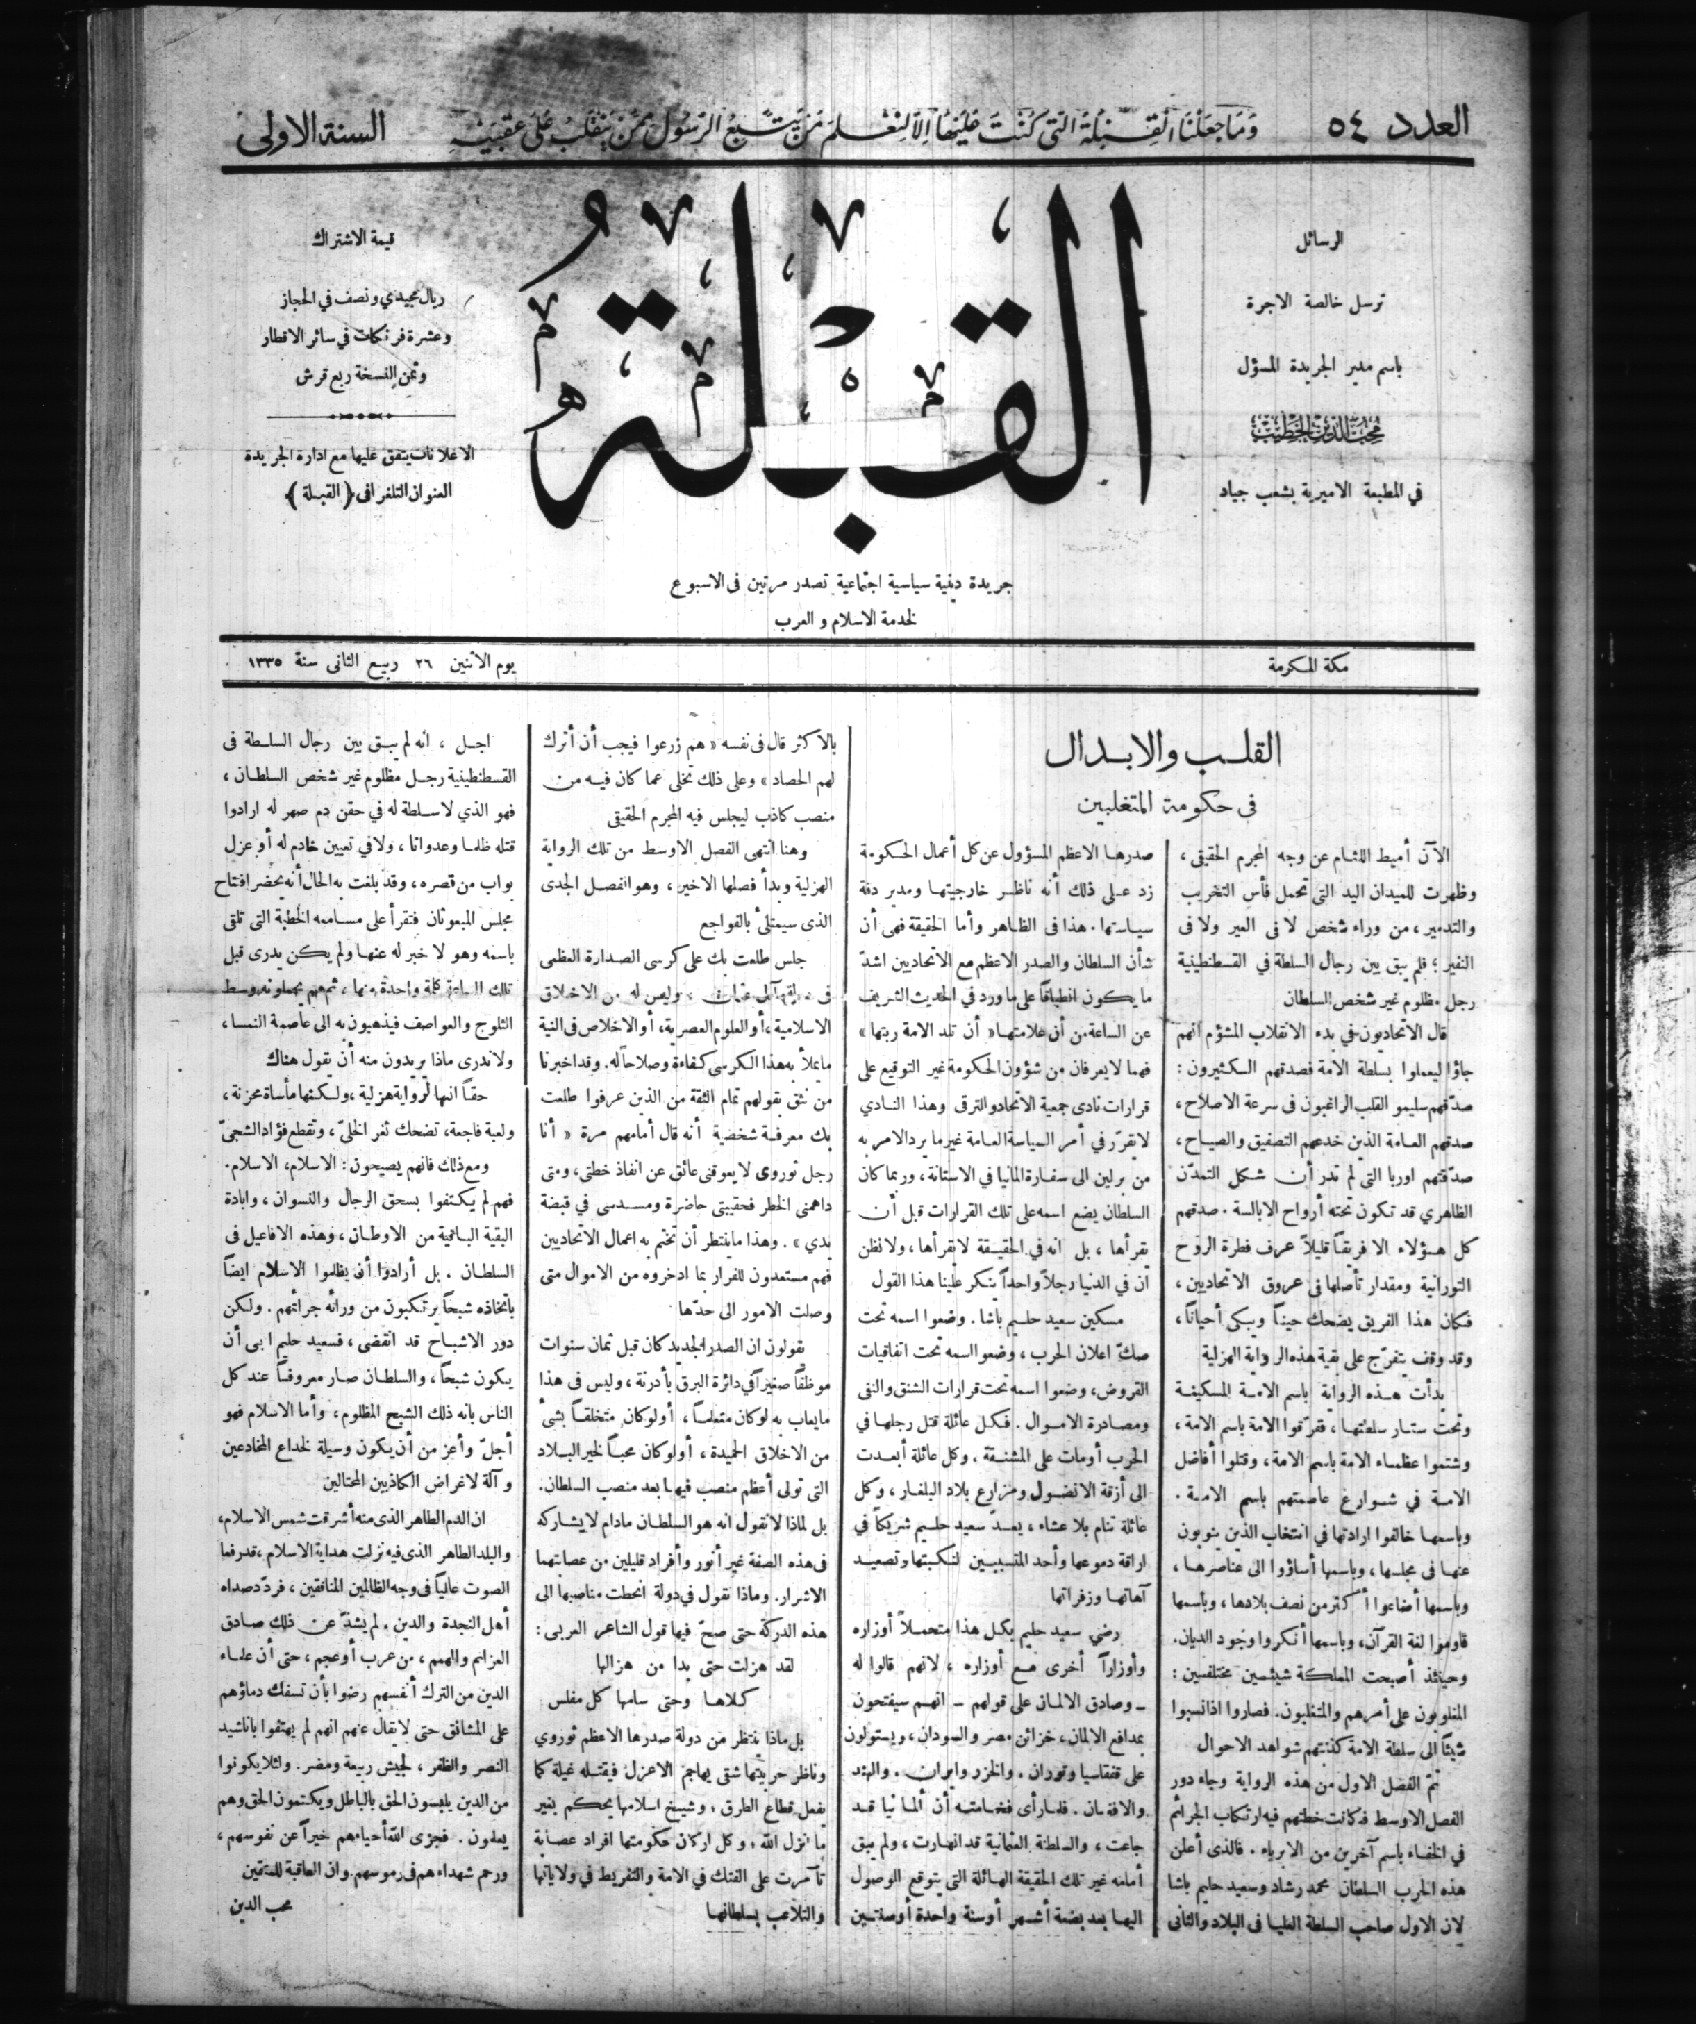 العدد ٥٤
وَمَا جَعَلْنَا الْقِبْلَةَ الَّتِي كُنْتَ عَلَيْهَا إِلَّا لِنَعْلَمَ مَنْ يَتَّبِعُ الرَّسُولَ مِمَّنْ يَنْقَلِبُ عَلَى عَقِبَيْهِ
السنة الاولى
الرسائل
ترسل خالصة الاجرة
باسم مدير الجريدة المسؤل
محب الدين الخطيب
في المطبعة الاميرية بشعب جياد
القبلة
قيمة الاشتراك
ريال مجيدي ونصف في الحجاز
وعشرة فرنكات في سائر الاقطار
وثمن النسخة ربع قرش
الاعلانات يتفق عليها مع ادارة الجريدة
العنوان التلغرافى (القبلة)
جريدة دينية سياسية اجتماعية تصدر مرتين فى الاسبوع
لخدمة الاسلام والعرب
مكة المكرمة
يوم الاثنين ٢٦ ربيع الثانى سنة ١٣٣٥
القلب والابدال
فى حكومة المتغلبين
الآن أميط اللثام عن وجه المجرم الحقيقى،
وظهرت للميدان اليد التى تحمل فأس التخريب
والتدمير، من وراء شخص لا فى العير ولا فى
النفير؛ فلم يبق بين رجال السلطة في القسطنطينية
رجل مظلوم غير شخص السلطان
قال الاتحاديون في بدء الانقلاب المشؤم انهم
جاؤا ليعملوا بسلطة الامة فصدقهم الكثيرون:
صدّقهم سليمو القلب الراغبون فى سرعة الاصلاح،
صدقهم العامة الذين خدعهم التصفيق والصياح،
صدّقتهم اوربا التى لم تدر أن شكل التمدّن
الظاهري قد تكون تحته أرواح الابالسة. صدقهم
كل هؤلاء الا فريقاً قليلاً عرف فطرة الروح
التورانية ومقدار تأصلها فى عروق الاتحاديين،
فكان هذا الفريق يضحك حيناً ويبكى أحياناً،
وقد وقف يتفرّج على بقية هذه الرواية الهزلية
بدأت هذه الرواية باسم الامة المسكينة
وتحت ستار سلطتها، ففرّقوا الامة باسم الامة،
وشتموا عظماء الامة باسم الامة، وقتلوا أفاضل
الامة في شوارع عاصمتهم باسم الامة.
وباسمها خالفوا ارادتها في انتخاب الذين ينوبون
عنها فى مجلسها، وباسمها أساؤوا الى عناصرها،
وباسمها أضاعوا أكثر من نصف بلادها، وباسمها
قاوموا لغة القرآن، وباسمها أنكروا وجود الديان.
وحينئذ أصبحت المملكة شيئين مختلفين:
المغلوبون على أمرهم والمتغلبون. فصاروا اذا نسبوا
شيئاً الى سلطة الامة كذبتهم شواهد الاحوال
تمّ الفصل الاول من هذه الرواية وجاء دور
الفصل الاوسط فكانت خطتهم فيه ارتكاب الجرائم
في الخفاء باسم آخرين من الابرياء. فالذى أعلن
هذه الحرب السلطان محمد رشاد وسعيد حليم باشا
لان الاول صاحب السلطة العليا فى البلاد والثانى
صدرها الاعظم المسؤول عن كل أعمال الحكومة
زد على ذلك أنه ناظر خارجيتها ومدير دفة
سياستها. هذا فى الظاهر وأما الحقيقة فهى أن
شأن السلطان والصدر الاعظم مع الاتحاديين اشدّ
ما يكون انطباقاً على ما ورد في الحديث الشريف
عن الساعة من أن علامتها «أن تلد الامة ربتها»
فهما لا يعرفان من شؤون الحكومة غير التوقيع على
قرارات نادى جمعية الاتحاد والترقى وهذا النادي
لا يقرّر في أمر السياسة العامة غير ما يرد الامر به
من برلين الى سفارة المانيا في الاستانة، وربما كان
السلطان يضع اسمه على تلك القرارات قبل أن
يقرأها، بل انه في الحقيقة لا يقرأها، ولا نظن
أن في الدنيا رجلاً واحداً ينكر علينا هذا القول
مسكين سعيد حليم باشا. وضعوا اسمه تحت
صكّ اعلان الحرب، وضعوا اسمه تحت اتفاقيات
القروض، وضعوا اسمه تحت قرارات الشنق والنفى
ومصادرة الاموال. فكل عائلة قتل رجلها في
الحرب أو مات على المشنقة. وكل عائلة أبعدت
الى أزقة الاناضول ومزارع بلاد البلغار، وكل
عائلة تنام بلا عشاء، يعدّ سعيد حليم شريكاً في
اراقة دموعها وأحد المتسببين لنكبتها وتصعيد
آهاتها وزفراتها
رضي سعيد حليم بكل هذا متحملاً أوزاره
وأوزاراً أخرى مع أوزاره، لانهم قالوا له
ـ وصادق الالمان على قولهم ـ انهم سيفتحون
بمدافع الالمان، خزائن مصر والسودان، ويستولون
على قفقاسيا وتوران. والخزر وايران. والهند
والافغان. فلما رأى فخامته أن ألمانيا قد
جاعت، والسلطنة العثمانية قد انهارت، ولم يبق
أمامه غير تلك الحقيقة الهائلة التى يتوقع الوصول
اليها بعد بضعة أشهر أو سنة واحدة أو سنتين
بالأكثر قال فى نفسه «هم زرعوا فيجب أن أترك
لهم الحصاد» وعلى ذلك تخلى عما كان فيه من
منصب كاذب ليجلس فيه المجرم الحقيقى
وهنا انتهى الفصل الاوسط من تلك الرواية
الهزلية وبدأ فصلها الاخير، وهو الفصل الجدى
الذى سيمتلئ بالفواجع
جلس طلعت بك على كرسى الصدارة العظمى
فى دولة آل عثمان، وليس له من الاخلاق
الاسلامية، أو العلوم العصرية، أو الاخلاص فى النية
ما يملأ به هذا الكرسى كفاءة وصلاحاً له. وقد اخبرنا
من نثق بقولهم تمام الثقة من الذين عرفوا طلعت
بك معرفة شخصية أنه قال أمامهم مرة «أنا
رجل ثوروى لا يعوقنى عائق عن انفاذ خطتى، ومتى
داهمنى الخطر فحقيبتى حاضرة ومسدسى في قبضة
يدي». وهذا ما ينتظر أن تختم به اعمال الاتحاديين
فهم مستعدون للفرار بما ادخروه من الاموال متى
وصلت الامور الى حدّها
يقولون ان الصدر الجديد كان قبل ثمان سنوات
موظفاً صغيراً في دائرة البرق بأدرنة، وليس فى هذا
ما يعاب به لو كان متعلماً، أو لو كان متخلقاً بشئ
من الاخلاق الحميدة، أو لو كان محباً لخير البلاد
التى تولى أعظم منصب فيها بعد منصب السلطان.
بل لماذا لا نقول انه هو السلطان مادام لا يشاركه
فى هذه الصفة غير أنور وأفراد قليلين من عصابتهما
الاشرار. وماذا نقول في دولة انحطت مناصبها الى
هذه الدركة حتى صحّ فيها قول الشاعر العربى:
لقد هزلت حتى بدا من هزالها
كلاها وحتى سامها كل مفلس
بل ماذا ينتظر من دولة صدرها الاعظم ثوروي
وناظر حربيتها شقى يهاجم الاعزل فيقتله غيلة كما
يفعل قطاع الطرق، وشيخ اسلامها يحكم بغير
ما انزل الله، وكل اركان حكومتها افراد عصابة
تآمرت على الفتك في الامة والتفريط في ولاياتها
والتلاعب بسلطانها
اجل، انه لم يبق بين رجال السلطة فى
القسطنطينية رجل مظلوم غير شخص السلطان،
فهو الذي لا سلطة له في حقن دم صهر له ارادوا
قتله ظلما وعدوانا، ولا في تعيين خادم له أو عزل
بواب من قصره، وقد بلغت به الحال أنه يحضر افتتاح
مجلس المبعوثان فتقرأ على مسامعه الخطبة التى تلقى
باسمه وهو لا خبر له عنها ولم يكن يدرى قبل
تلك الساعة كلمة واحدة منها، ثم هم يحملونه وسط
الثلوج والعواصف فيذهبون به الى عاصمة النمسا،
ولا ندرى ماذا يريدون منه أن يقول هناك
حقاً انها لرواية هزلية، ولكنها مأساة محزنة،
ولعبة فاجعة، تضحك ثغر الخليّ، وتقطع فؤاد الشجىّ
ومع ذلك فانهم يصيحون: الاسلام، الاسلام.
فهم لم يكتفوا بسحق الرجال والنسوان، وابادة
البقية الباقية من الاوطان، وهذه الافاعيل فى
السلطان. بل أرادوا أن يظلموا الاسلام ايضاً
باتخاذه شبحاً يرتكبون من ورائه جرائمهم. ولكن
دور الاشباح قد انقضى، فسعيد حليم ابى أن
يكون شبحاً، والسلطان صار معروفاً عند كل
الناس بانه ذلك الشبح المظلوم، وأما الاسلام فهو
أجلّ وأعز من أن يكون وسيلة لخداع المخادعين
وآلة لاغراض الكاذبين المحتالين
ان الدم الطاهر الذى منه أشرقت شمس الاسلام،
والبلد الطاهر الذى فيه نزلت هداية الاسلام، قد رفعا
الصوت عالياً فى وجه الظالمين المنافقين، فردّد صداه
أهل النجدة والدين. لم يشذّ عن ذلك صادق
العزائم والهمم، من عرب أو عجم، حتى أن علماء
الدين من الترك أنفسهم رضوا بأن تسفك دماؤهم
على المشانق حتى لا يقال عنهم انهم لم يهتفوا باناشيد
النصر والظفر، لجيش ربيعة ومضر. ولئلا يكونوا
من الذين يلبسون الحق بالباطل ويكتمون الحق وهم
يعلمون. فجزى الله أحياءهم خيراً عن نفوسهم،
ورحم شهداءهم فى رموسهم. وان العاقبة للمتقين
محب الدين